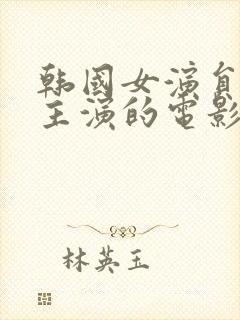 韩國女演員
主演的電影
林英玉